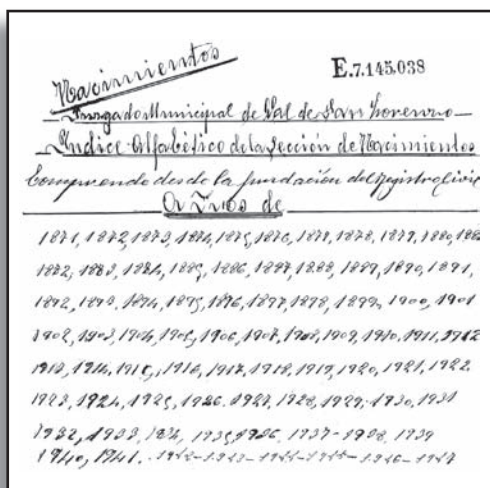 Nacimientos
E.7.145.038
Juzgado Municipal de Val de San Lorenzo
Indice Alfabético de la Sección de Nacimientos
Comprende desde la fundación del Registro Civil
Años de
1871, 1872, 1873, 1874, 1875, 1876, 1877, 1878, 1879, 1880, 1881
1882, 1883, 1884, 1885, 1886, 1887, 1888, 1889, 1890, 1891,
1892, 1893, 1894, 1895, 1896, 1897, 1898, 1899, 1900, 1901
1902, 1903, 1904, 1905, 1906, 1907, 1908, 1909, 1910, 1911, 1912
1913, 1914, 1915, 1916, 1917, 1918, 1919, 1920, 1921, 1922
1923, 1924, 1925, 1926, 1927, 1928, 1929, 1930, 1931
1932, 1933, 1934, 1935, 1936, 1937-1938, 1939
1940, 1941. 1942-1943-1944-1945-1946-1947